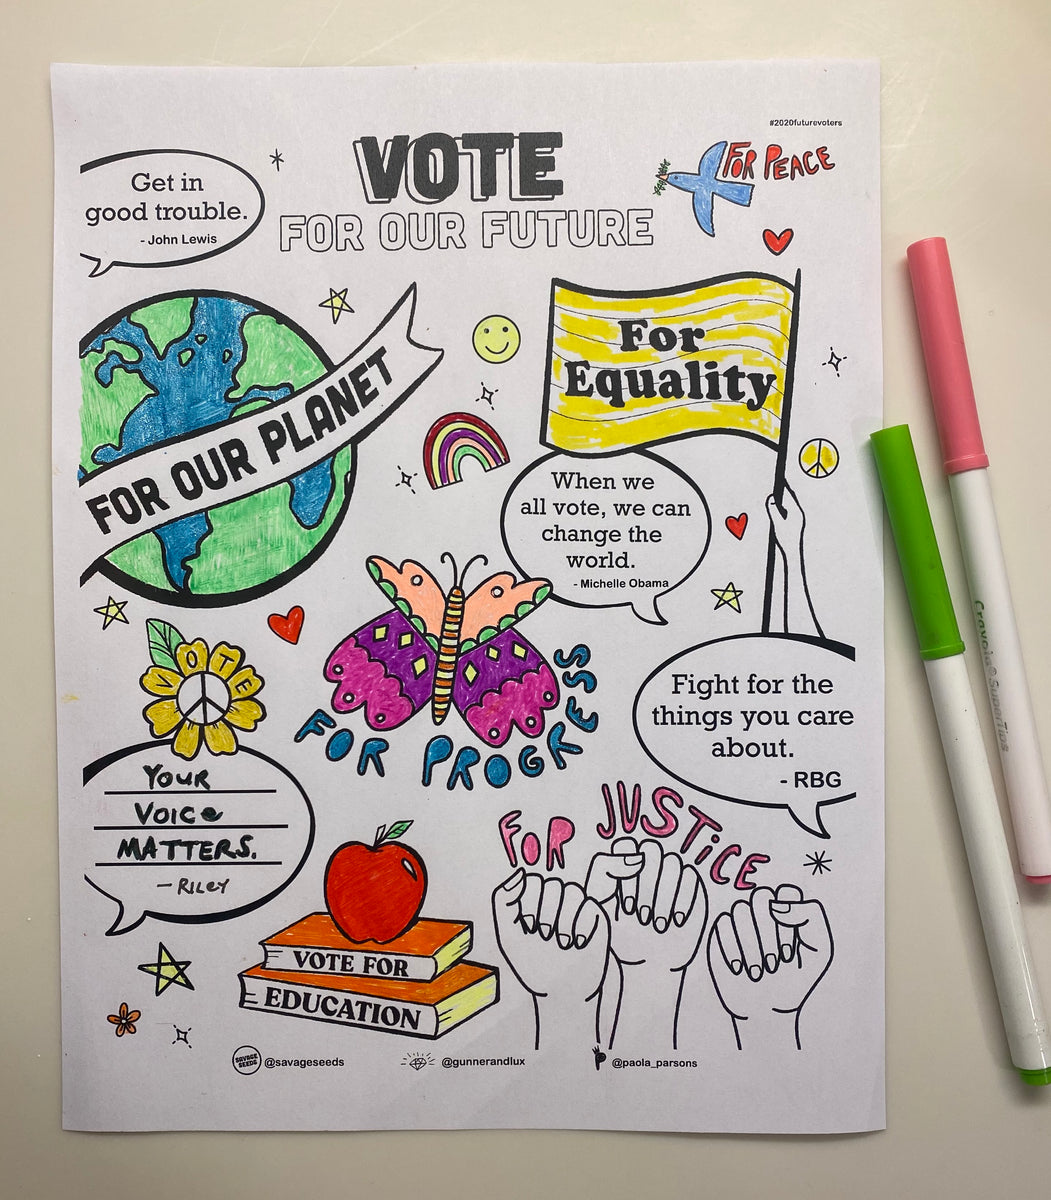 #2020futurevoters
VOTE
FOR OUR FUTURE
FOR PEACE
Get in
good trouble.
- John Lewis
FOR OUR PLANET
For
Equality
When we
all vote, we can
change the
world.
- Michelle Obama
VOTE
FOR PROGRESS
Fight for the
things you care
about.
- RBG
YOUR
VOICe
MATTERS.
- RILeY
FOR JUSTiCE
VOTE FOR
EDUCATION
SAVAGE
SEEDS
@savageseeds
@gunnerandlux
@paola_parsons
Crayola® SuperTips